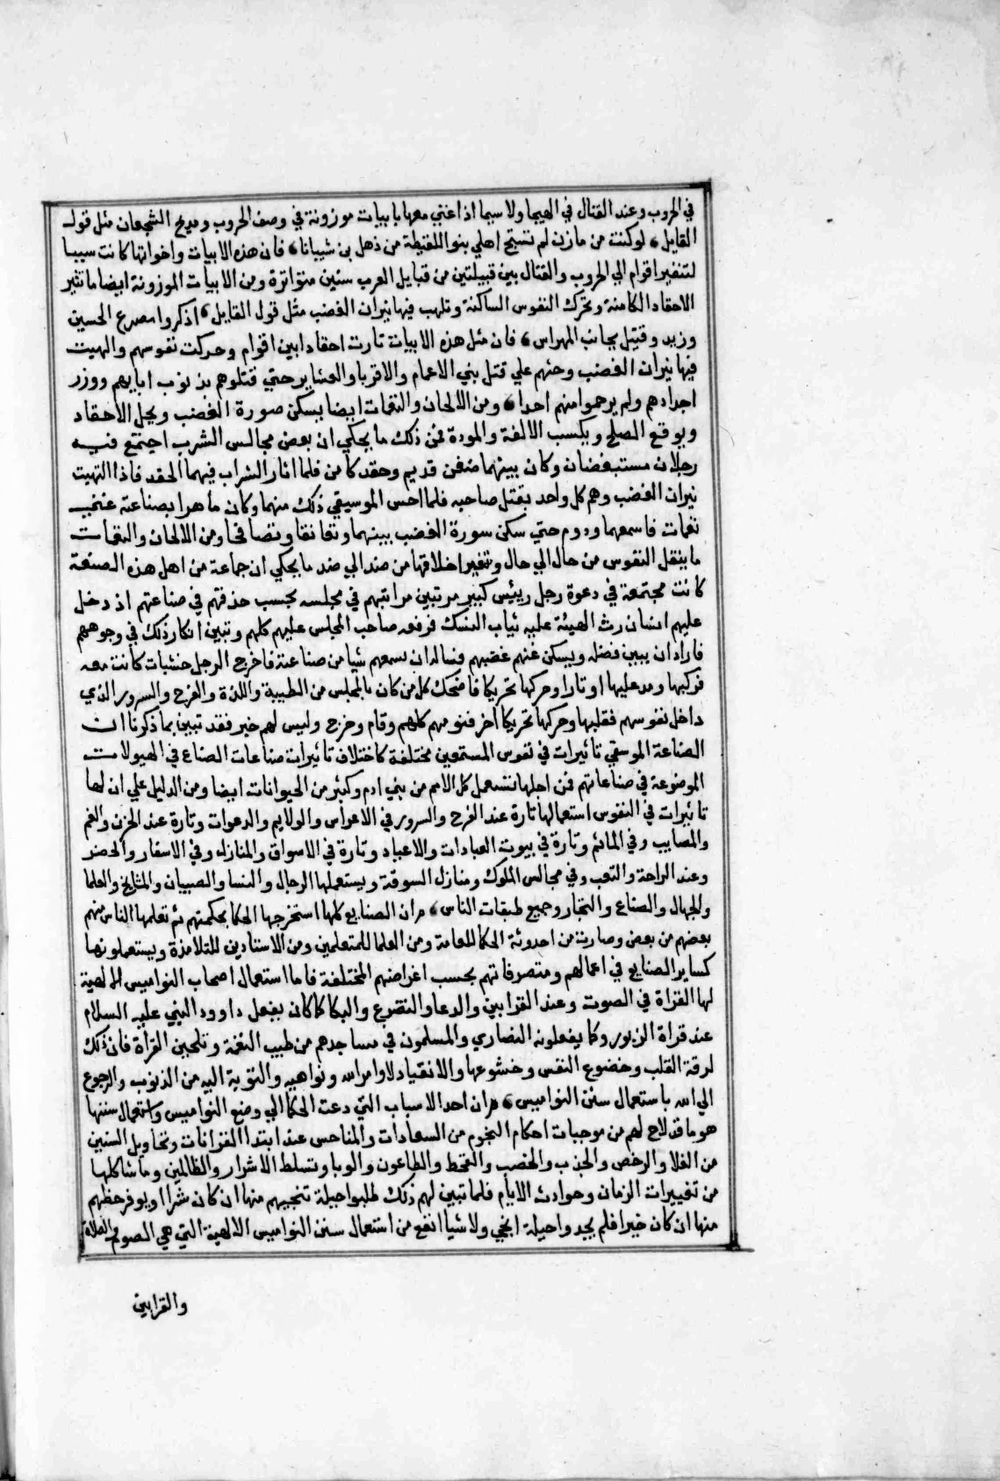 في الحروب وعند القتال في الهيجا ولا سيما اذا غني معها بابيات موزونة في وصف الحروب ومديح الشجعان مثل قول
القايل، لو كنت من مازن لم تستبح اهلي بنو اللقيطة من ذهل بن شيبانا، فان هذه الابيات واخواتها كانت سببا
لتنفير اقوام الي الحروب والقتال بين قبيلتين من قبايل العرب سنين متواترة ومن الابيات الموزونة ايضا ما تثير
الاحقاد الكامنة وتحرك النفوس الساكنة وتلهب فيها نيران الغضب مثل قول القايل، اذكروا مصرع الحسين
وزيد وقتيل بجانب المهراس، فان مثل هذه الابيات ثارت احقادا بين اقوام وحركت نفوسهم والهبت
فيها نيران الغضب وحثهم علي قتل بني الاعمام والاقربا والعشاير حتي قتلوهم بذنوب ابايهم ووزر
اجدادهم ولم يرحموا منهم احدا، ومن الالحان والنغمات ايضا يسكن صورة الغضب ويحل الاحقاد
ويوقع الصلح ويكسب الالفة والمودة فمن ذلك ما يحكي ان بعض مجالس الشرب اجتمع فيه
رجلان مستبغضان وكان بينهما ضغن قديم وحقد كامن فلما اثار الشراب فيهما الحقد فاذا التهبت
نيران الغضب وهم كل واحد بقتل صاحبه فلما احس الموسيقي ذلك منهما وكان ماهرا بصناعته
نغمات فاسمعهما وداوم حتي سكن سورة الغضب بينهما وتعانقا وتصافحا ومن الالحان والنغمات
ما ينقل النفوس من حال الي حال وتغير اخلاقها من ضد الي ضد ما يحكي ان جماعة من اهل هذه الصنعة
كانت مجتمعة في دعوة رجل رييس كبير مرتبين مراتبهم في مجلسه بحسب حذقهم في صناعتهم اذ دخل
عليهم انسان رث الهيئة عليه ثياب النسك فرفعه صاحب المجلس عليهم كلهم وتبين انكار ذلك في وجوههم
فاراد ان يبين فضله ويسكن عنهم غضبهم فساله ان يسمعهم شيا من صناعته فاخرج الرجل خشبات كانت معه
فركبها ومد عليها اوتارا وحركها تحريكا فاضحك كل من كان بالمجلس من الطيبة واللذة والفرح والسرور الذي
داخل نفوسهم فقلبها وحركها تحريكا اخر فنومهم كلهم وقام وخرج وليس لهم خبر فقد تبين بما ذكرنا ان
الصناعة الموسقي تاثيرات في نفوس المستمعين مختلفة كاختلاف تاثيرات صناعات الصناع في الهيولات
الموضوعة في صناعاتهم فمن اجلها تستعمل كل الامم من بني ادم وكثير من الحيوانات ايضا ومن الدليل علي ان لها
تاثيرات في النفوس استعمالها تارة عند الفرح والسرور في الاعراس والولايم والدعوات وتارة عند الحزن والغم
والمصايب وفي الماتم وتارة في بيوت العبادات والاعياد وتارة في الاسواق والمنازل وفي الاسفار والحضر
وعند الراحة والتعب وفي مجالس الملوك ومنازل السوقة ويستعملها الرجال والنسا والصبيان والمشايخ والعلما
والجهال والصناع والتجار وجميع طبقات الناس، ثم ان الصنايع كلها استخرجها الحكما بحكمتهم ثم تعلمها الناس منهم
بعضهم من بعض وصارت من احدوثة الحكما للعامة ومن العلما للمتعلمين ومن الاستادين للتلامذة ويستعملونها
كساير الصنايع في اعمالهم ومتصرفاتهم بحسب اغراضهم المختلفة فاما استعمال اصحاب النواميس الالهية
لها القراة في الصوت وعند القرابين والدعا والتضرع والبكا كما كان يفعل داوود النبي عليه السلام
عند قراة الزبور وكما يفعلونه النصاري والمسلمون في مساجدهم من طيب النغمة وتلحين القراة فان ذلك
لرقة القلب وخضوع النفس وخشوعها والانقياد لاوامر الله ونواهيه والتوبة اليه من الذنوب والرجوع
الي الله باستعمال سنن النواميس، ثم ان احد الاسباب التي دعت الحكما الي وضع النواميس واستعمال سننها
هو ما قد لاح لهم من موجبات احكام النجوم من السعادات والمناحس عند ابتدا القرانات وتحاويل السنين
من الغلا والرخص والجدب والخصب والقحط والطاعون والوبا وتسلط الاشرار والظالمين وما شاكلها
من تغييرات الزمان وحوادث الايام فلما تبين لهم ذلك طلبوا حيلة تنجيهم منها ان كان شرا او يوفر حظهم
منها ان كان خيرا فلم يجدوا حيلة انجي ولا شيا انفع من استعمال سنن النواميس الالهية التي هي الصوم والصلاة
والقرابين